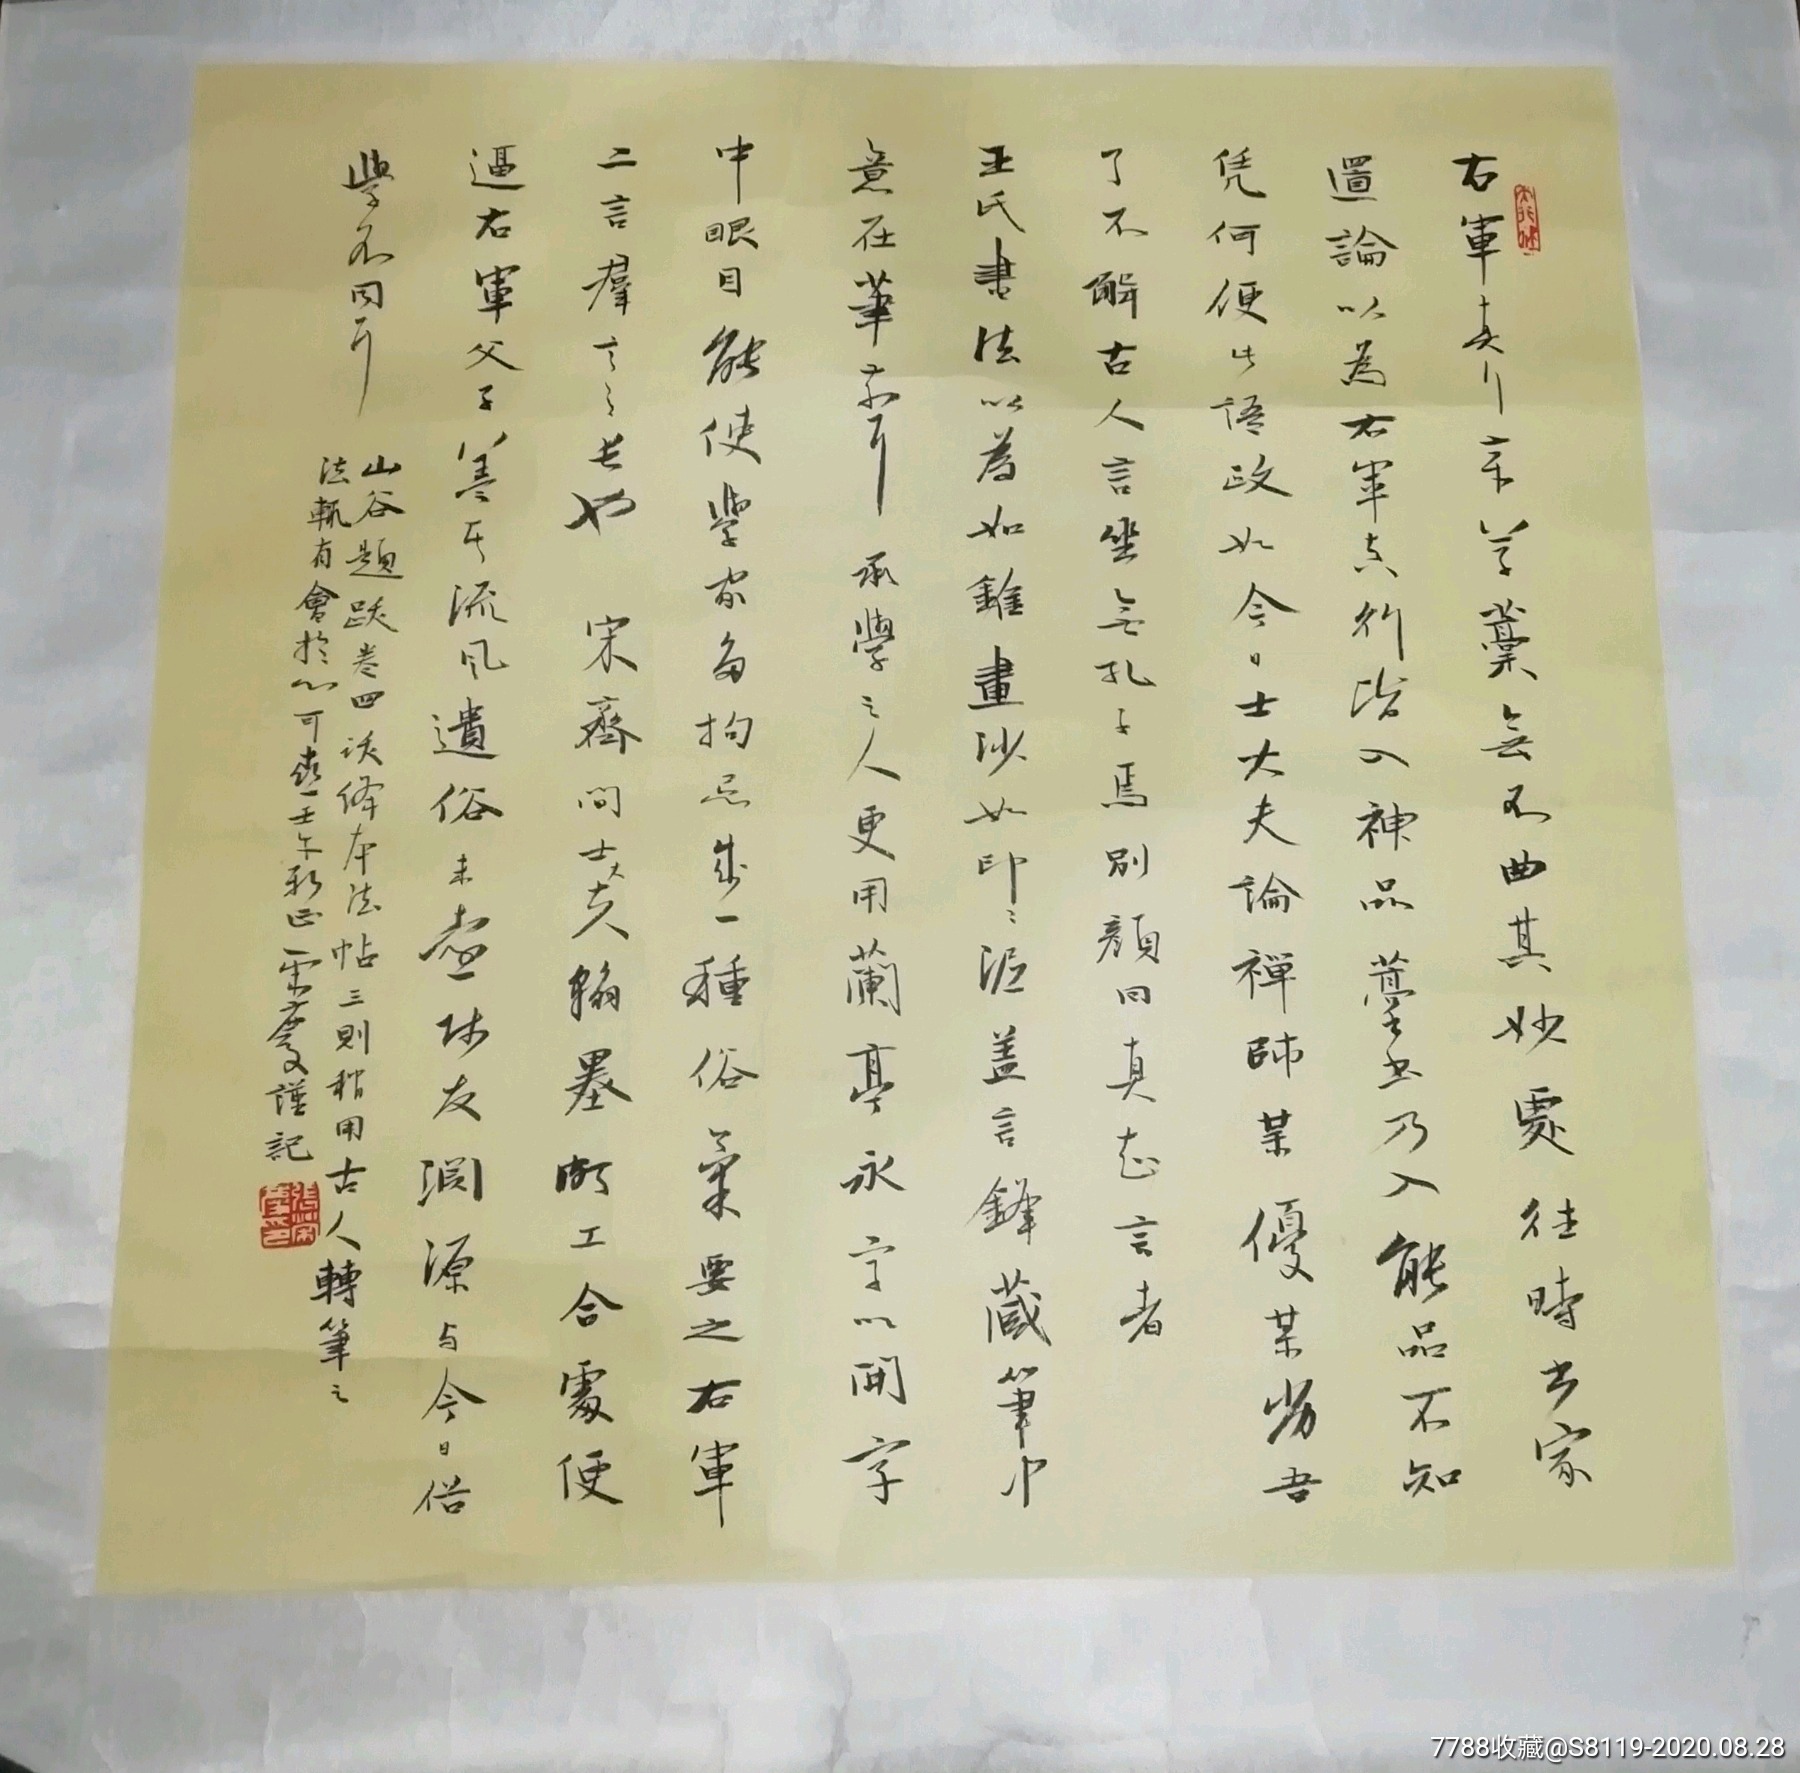 右軍真行章草藁無不曲其妙處往時書家
置論以為右軍真行皆入神品藁書乃入能品不知
凭何便作此語政如今日士大夫論禪師某優某劣吾
了不解古人言坐無孔子焉別顏回真知言者
王氏書法以為如錐畫沙如印印泥盖言鋒藏筆中
意在筆前耳 承學之人更用蘭亭永字以開字
中眼目能使學家多拘忌成一種俗氣要之右軍
二言羣言之長也 宋齊間士大夫翰墨頗工合處便
逼右軍父子蓋其流風遺俗未盡師友淵源与今日俗
學不同耳
山谷題跋卷四跋絳本法帖三則稍用古人轉筆之
法輒有會於心可喜壬午新正 榮慶謹記
7788收藏@S8119-2020.08.28